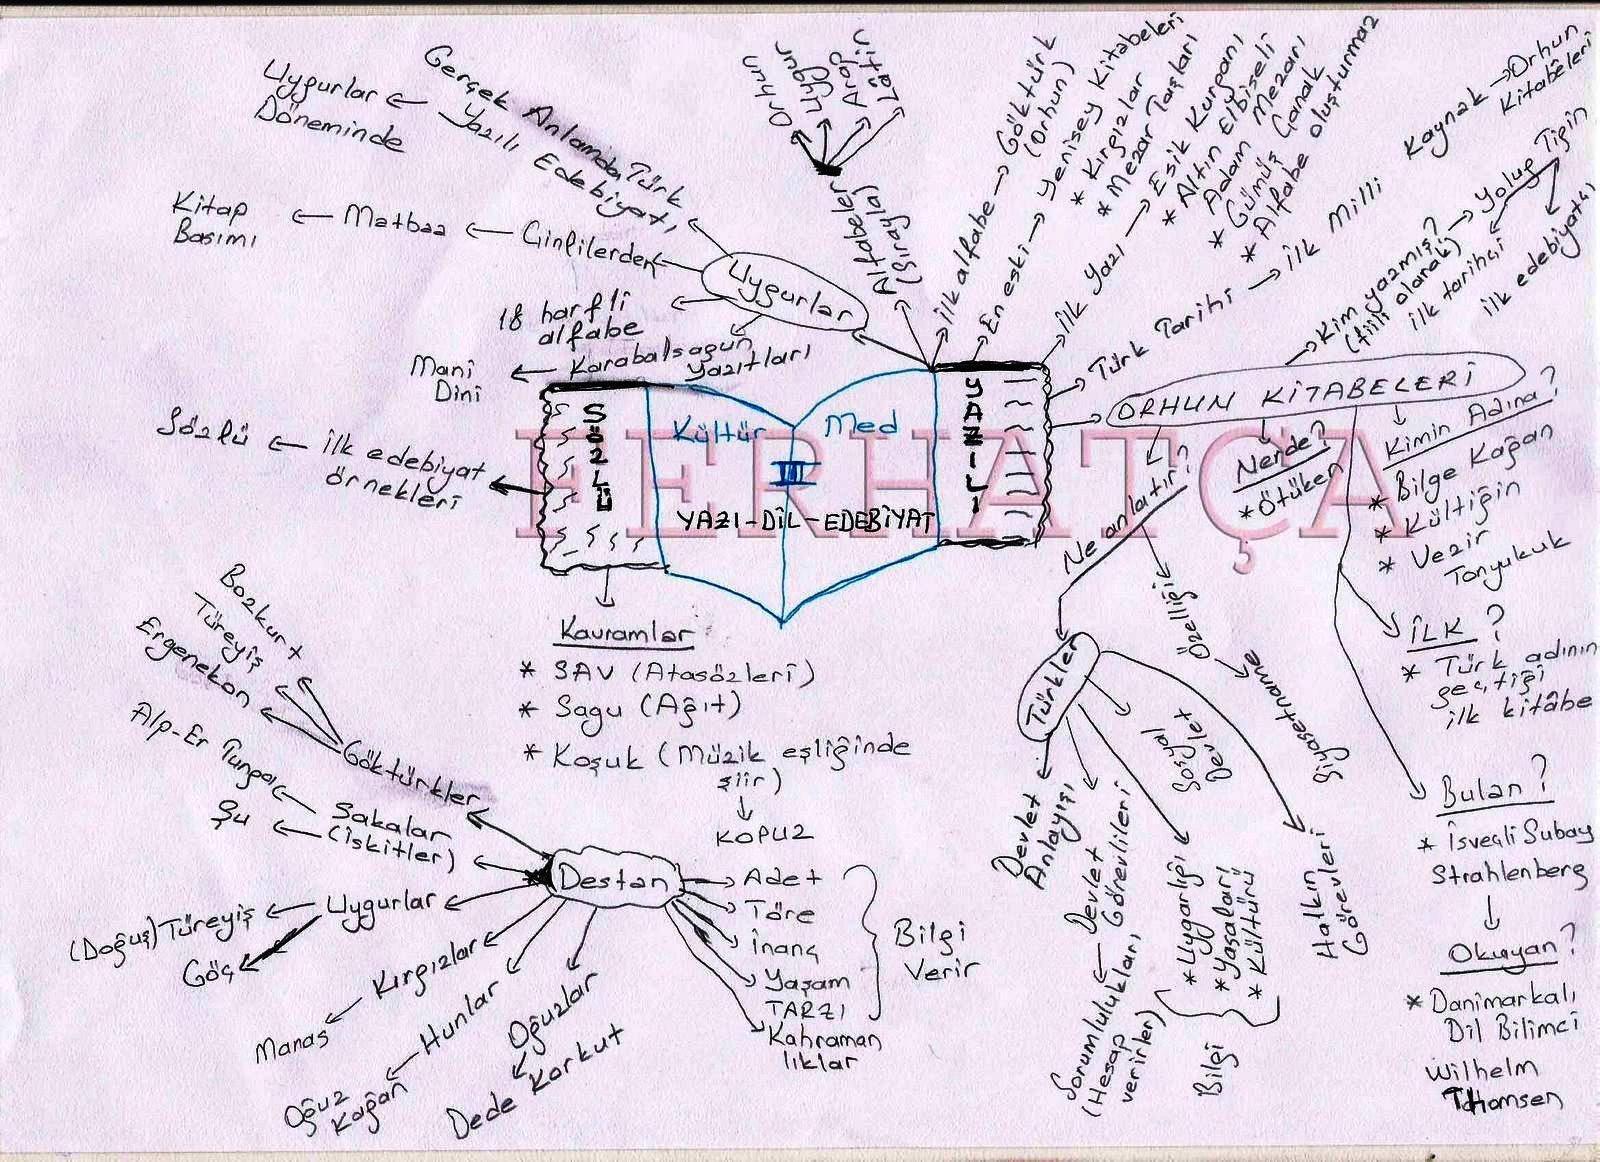 Gerçek Anlamda Türk
Yazılı Edebiyatı
Uygurlar
Döneminde
Çinlilerden
Matbaa
Kitap
Basımı
Uygurlar
18 harfli
alfabe
Karabalsagun
Yazıtları
Mani
Dini
Orhun
Uygur
Arap
Lâtin
Alfabeler
(Sırayla)
İlk alfabe → Göktürk
(Orhun)
En eski → Yenisey Kitabeleri
* Kırgızlar
* Mezar Taşları
İlk Yazı → Esik Kurganı
* Altın Elbiseli
Adam Mezarı
* Gümüş Çanak
* Alfabe oluşturmaz
Türk Tarihi → İlk Milli
Kaynak → Orhun
Kitabeleri
ORHUN KİTABELERİ
Kim yazmış?
(fiili olarak)
Yolug Tigin
ilk tarihçi
ilk edebiyatçı
Ne anlatır?
Nerde?
* Ötüken
Kimin Adına?
* Bilge Kağan
* Kültigin
* Vezir
Tonyukuk
İLK?
* Türk adının
geçtiği
ilk kitâbe
Bulan?
* İsveçli Subay
Strahlenberg
Okuyan?
* Danimarkalı
Dil Bilimci
Wilhelm
Thomsen
Özelliği
Siyasetname
Türkler
Devlet
Anlayışı
Devlet
Görevlileri
Sorumlulukları,
(Hesap
verirler)
Sosyal
Devlet
* Uygarlığı
* Yaşaları
* Kültürü
Bilgi
Halkın
Görevleri
SÖZLÜ
Kültür
Med
III
YAZI-DİL-EDEBİYAT
YAZILI
FERHATÇA
İlk edebiyat
örnekleri
Sözlü
Kavramlar
* SAV (Atasözleri)
* Sagu (Ağıt)
* Koşuk (Müzik eşliğinde
şiir)
KOPUZ
Destan
Göktürkler
Bozkurt
Türeyiş
Ergenekon
Sakalar
(İskitler)
Alp-Er Tunga
Şu
Uygurlar
(Doğuş) Türeyiş
Göç
Kırgızlar
Manas
Hunlar
Oğuz
Kağan
Oğuzlar
Dede Korkut
Adet
Töre
İnanç
Yaşam
TARZI
Kahraman
lıklar
Bilgi
Verir